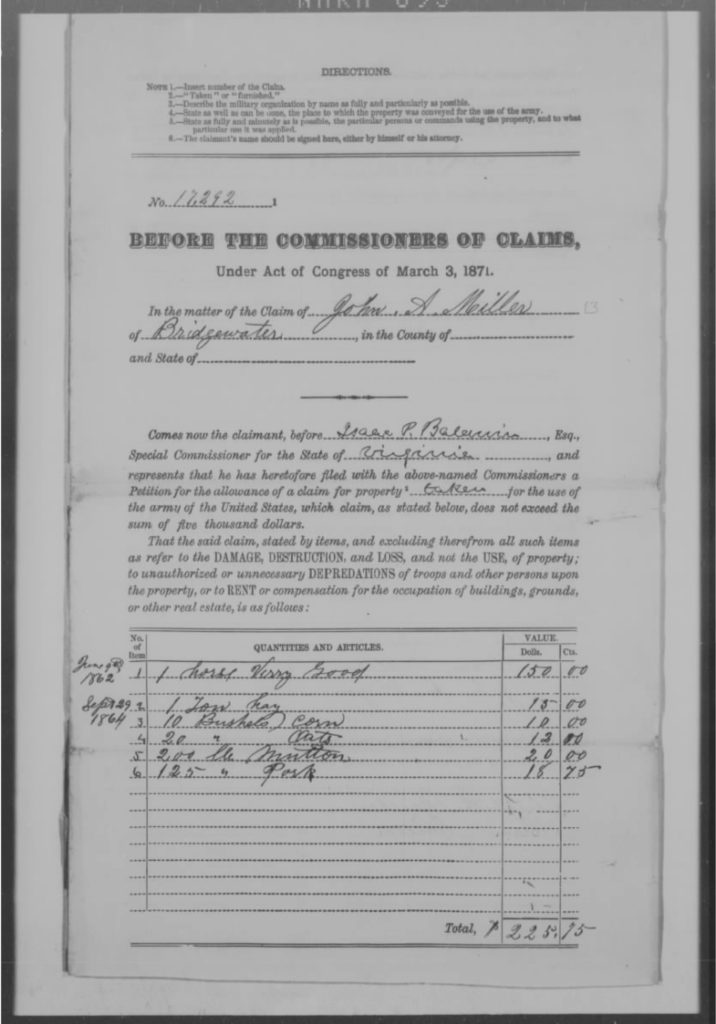 DIRECTIONS.
NOTE 1.—Insert number of the Claim.
2.—"Taken" or "furnished."
3.—Describe the military organization by name as fully and particularly as possible.
4.—State as well as can be done, the place to which the property was conveyed for the use of the army.
5.—State as fully and minutely as is possible, the particular persons or commands using the property, and to what
particular use it was applied.
6.—The claimant's name should be signed here, either by himself or his attorney.
No. 17,292 1
BEFORE THE COMMISSIONERS OF CLAIMS,
Under Act of Congress of March 3, 1871.
In the matter of the Claim of John A. Miller
of Bridgewater, in the County of
and State of
Comes now the claimant, before Isaac P. Baldwin, Esq.,
Special Commissioner for the State of Virginia, and
represents that he has heretofore filed with the above-named Commissioners a
Petition for the allowance of a claim for property² taken for the use of
the army of the United States, which claim, as stated below, does not exceed the
sum of five thousand dollars.
That the said claim, stated by items, and excluding therefrom all such items
as refer to the DAMAGE, DESTRUCTION, and LOSS, and not the USE, of property;
to unauthorized or unnecessary DEPREDATIONS of troops and other persons upon
the property, or to RENT or compensation for the occupation of buildings, grounds,
or other real estate, is as follows:
No. of Item QUANTITIES AND ARTICLES. VALUE. Dolls. Cts.
June 1862 1 1 horse Verry Good 150 00
Sept 29 2 1 Ton hay 15 00
1864 3 10 Bushels Corn 10 00
4 20 " Oats 12 00
5 200 lb Mutton 20 00
6 125 " Pork 18 75
Total, $ 225.75